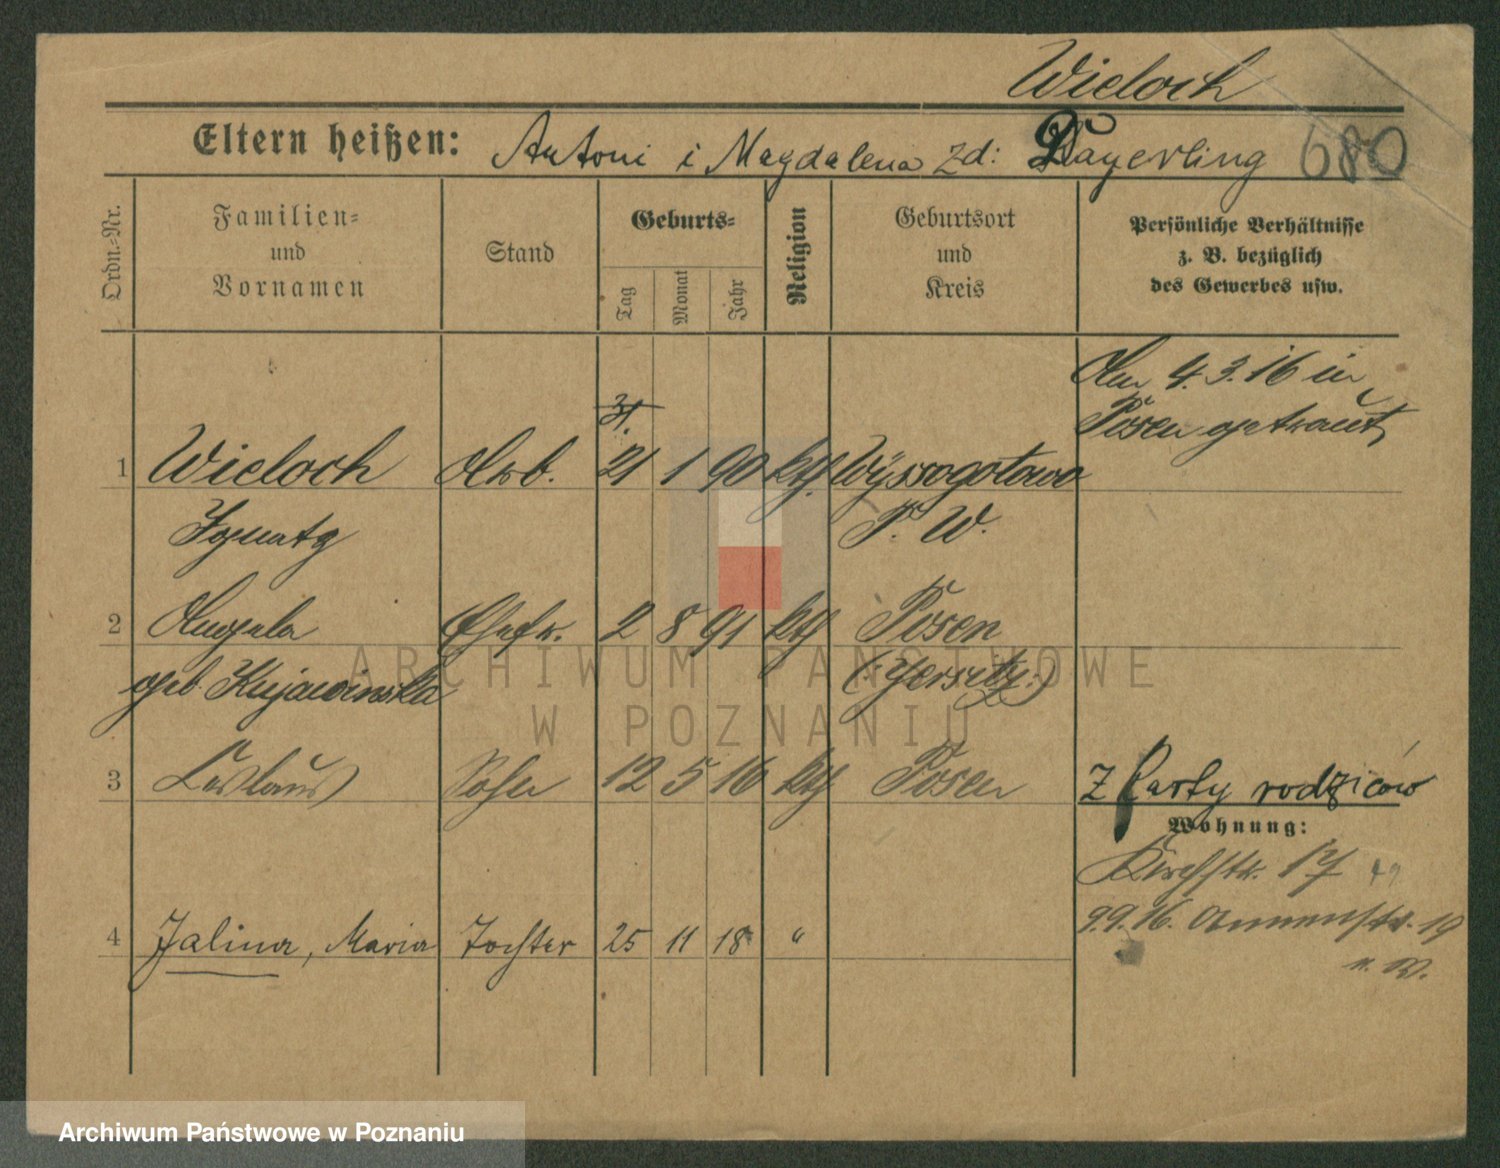 Wieloch
Eltern heißen: Antoni i Magdalena zd: Bayerling 680
Ordn.-Nr.
Familien-
und
Vornamen
Stand
Geburts-
Tag
Monat
Jahr
Religion
Geburtsort
und
Kreis
Persönliche Verhältnisse
z. B. bezüglich
des Gewerbes usw.
den 4.3.16 in
Posen getraut
31.
1 Wieloch Arb. 21 1 90 kth. Wyssogotowo
Ignatz P. W.
2 Angela Ehefr. 2 8 91 kth Posen
geb. Kujawinska (Jersitz)
3 Leslaus Sohn 12 5 16 kth Posen
Z karty rodziców
Wohnung:
Kirchstr. 17 49
9.9.16. Annenstr. 19
4 Halina, Maria Tochter 25 11 18 "
n. W.
ARCHIWUM PAŃSTWOWE
W POZNANIU
Archiwum Państwowe w Poznaniu